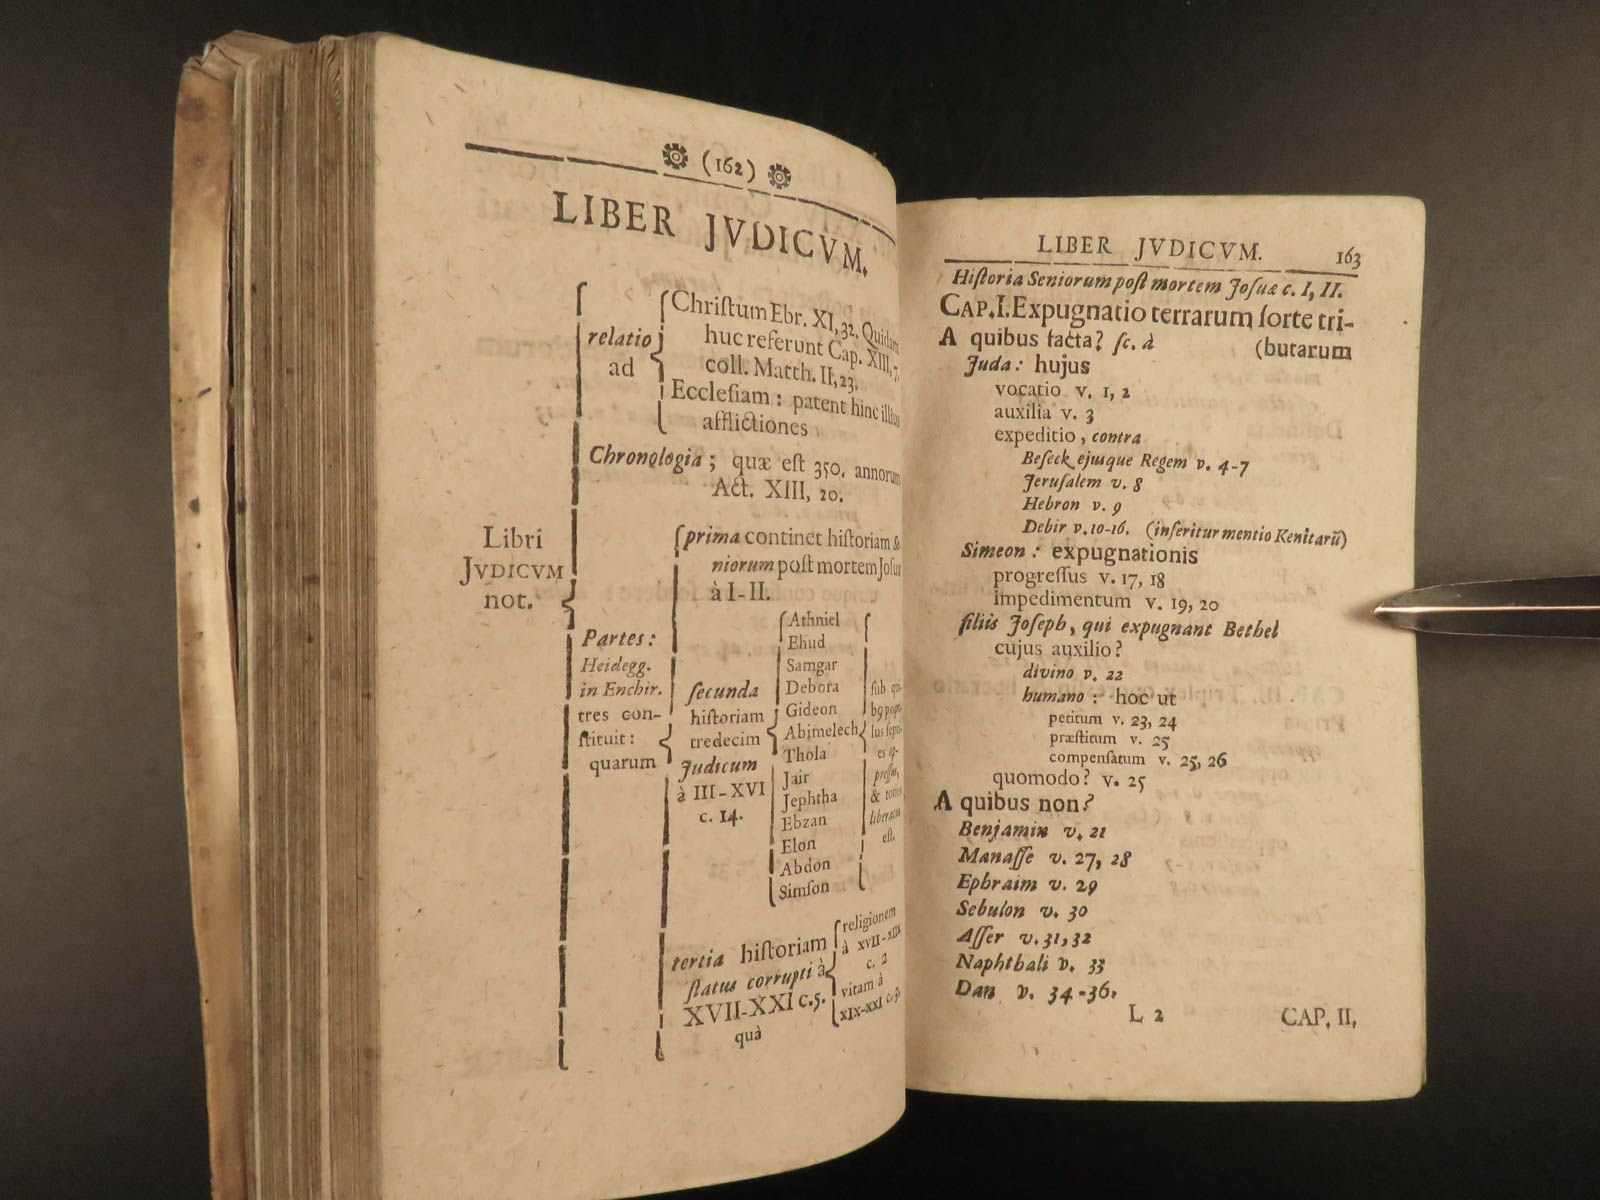 (162)
LIBER JVDICVM.
Libri
JVDICVM
not.
relatio
ad
Chriſtum Ebr. XI, 32. Quidam
huc referunt Cap. XIII, 7.
coll. Matth. II, 23.
Eccleſiam : patent hinc illius
afflictiones
Chronologia ; quæ eſt 350. annorum
Act. XIII, 20.
Partes :
Heidegg.
in Enchir.
tres con-
ſtituit :
quarum
prima continet hiſtoriam &
niorum poſt mortem Joſuæ
à I-II.
ſecunda
hiſtoriam
tredecim
Judicum
à III-XVI
c. 14.
Athniel
Ehud
Samgar
Debora
Gideon
Abimelech
Thola
Jair
Jephtha
Ebzan
Elon
Abdon
Simſon
ſub qui-
b9 popu-
lus ſepti-
es op-
preſſus,
& toties
liberatus
eſt.
tertia hiſtoriam
ſtatus corrupti à
XVII-XXI c.5.
quà
religionem
à XVII-XIIX
c. 2
vitam à
XIX-XXI c. 5.
LIBER JVDICVM. 163
Hiſtoria Seniorum poſt mortem Joſuæ c. I, II.
CAP. I. Expugnatio terrarum ſorte tri-
A quibus facta? ſc. à (butarum
Juda : hujus
vocatio v. 1, 2
auxilia v. 3
expeditio, contra
Beſeck ejusque Regem v. 4-7
Jeruſalem v. 8
Hebron v. 9
Debir v. 10-16. (inſeritur mentio Kenitarū)
Simeon : expugnationis
progreſſus v. 17, 18
impedimentum v. 19, 20
filiis Joſeph, qui expugnant Bethel
cujus auxilio?
divino v. 22
humano : hoc ut
petitum v. 23, 24
præſtitum v. 25
compenſatum v. 25, 26
quomodo? v. 25
A quibus non?
Benjamin v. 21
Manaſſe v. 27, 28
Ephraim v. 29
Sebulon v. 30
Aſſer v. 31, 32
Naphthali v. 33
Dan v. 34-36.
L 2 CAP. II,